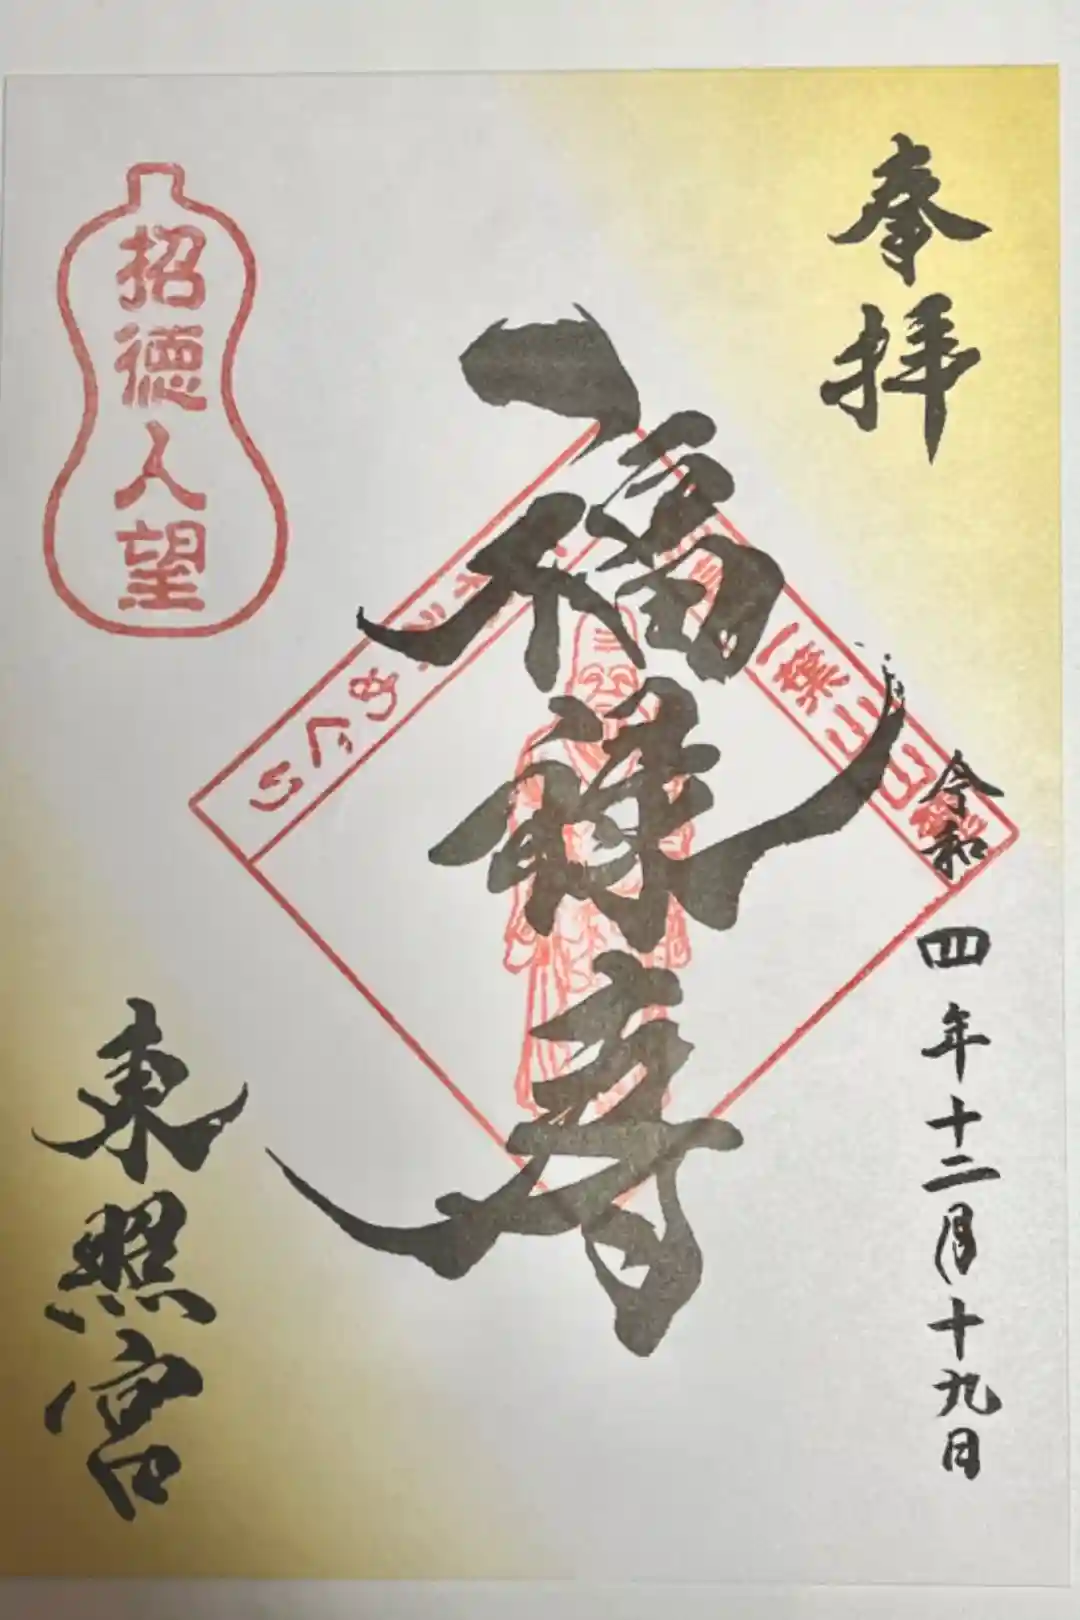 奉拝
令和四年十二月十九日
福禄寿
東照宮
招徳人望
めぐり